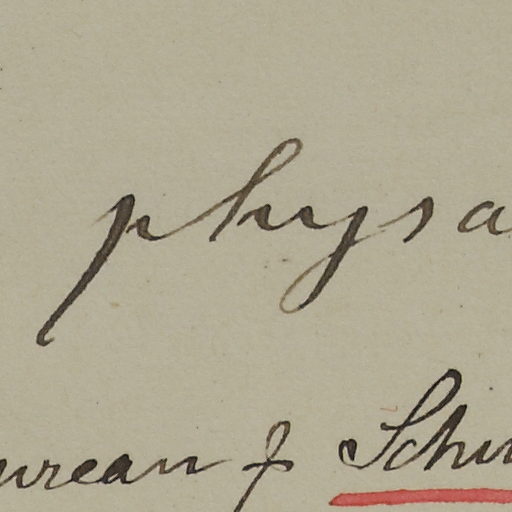 physa
ureau f Schw